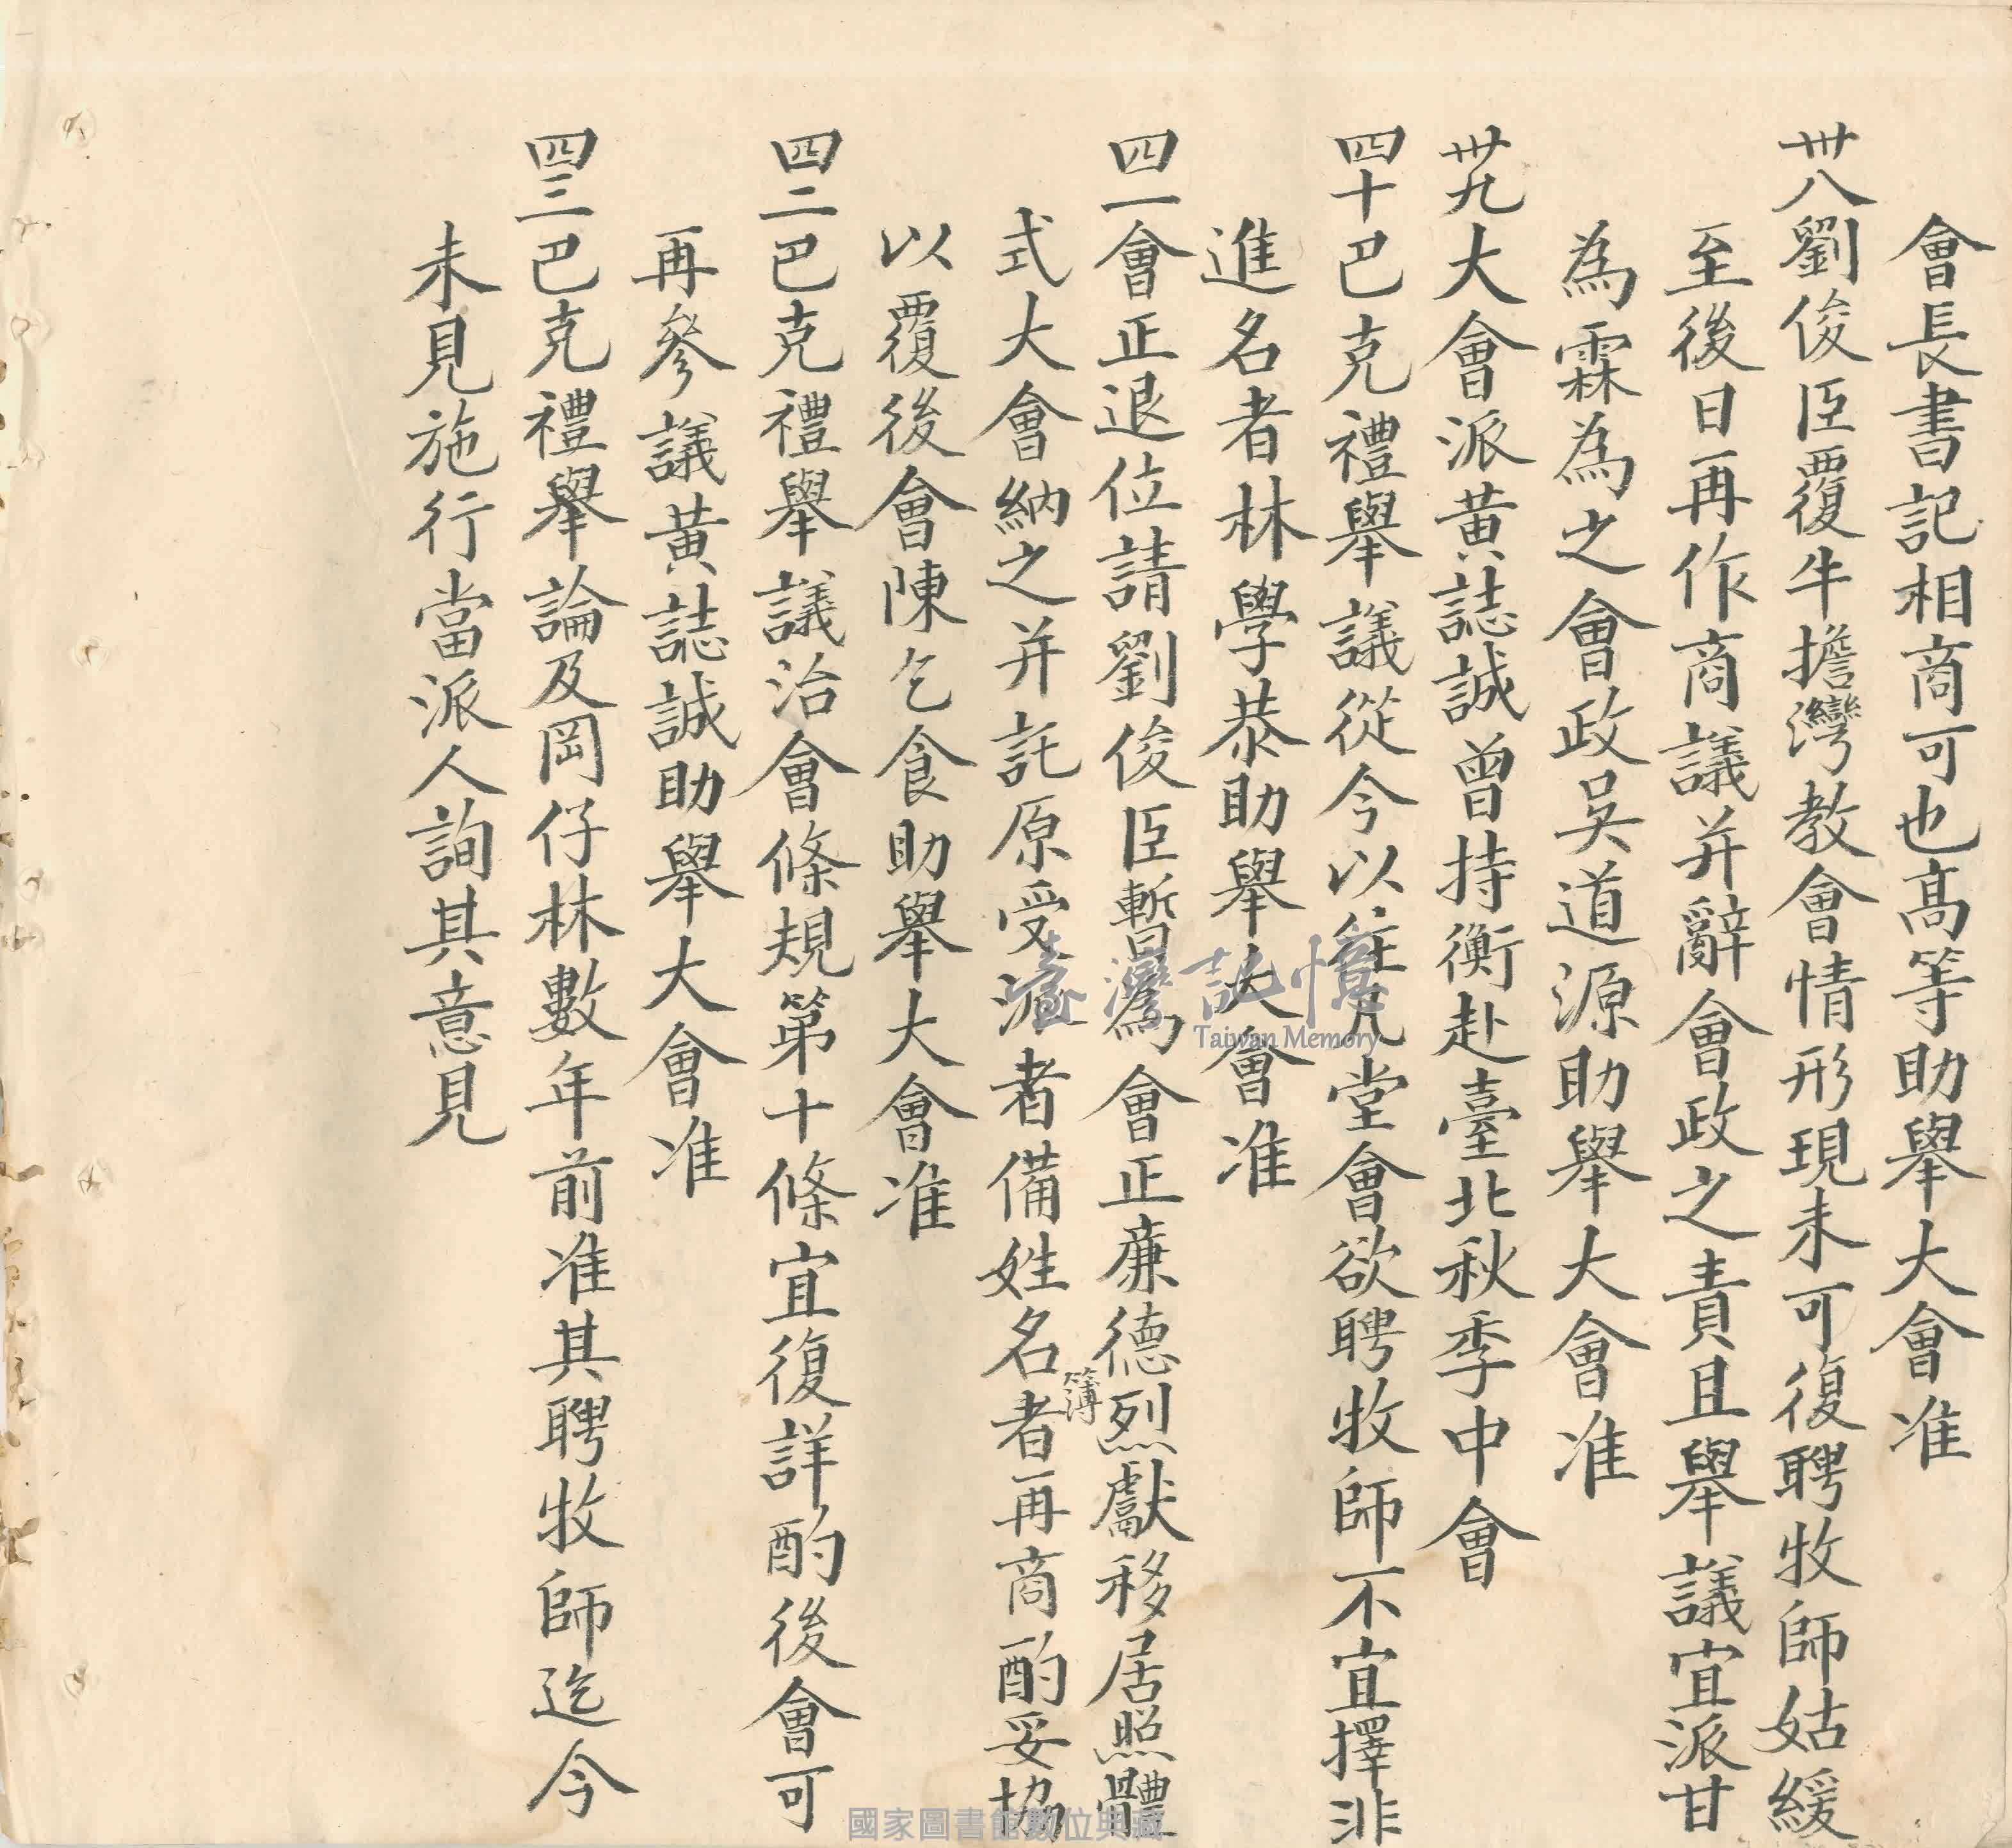 會長書記相商可也高等助舉大會准
卅八劉俊臣覆牛擔灣教會情形現未可復聘牧師姑緩
至後日再作商議并辭會政之責且舉議宜派甘
為霖為之會政吳道源助舉大會准
卅九大會派黃誌誠曾持衡赴臺北秋季中會
四十巴克禮舉議從今以往凡堂會欲聘牧師不宜擇非
進名者林學恭助舉大會准
四一會正退位請劉俊臣暫為會正廉德烈獻移居照體
簿
式大會納之并託原受派者備姓名者再商酌妥協
以覆後會陳乞食助舉大會准
四二巴克禮舉議治會條規第十條宜復詳酌後會可
再參議黃誌誠助舉大會准
四三巴克禮舉論及岡仔林數年前准其聘牧師迄今
未見施行當派人詢其意見
臺灣記憶
Taiwan Memory
國家圖書館數位典藏